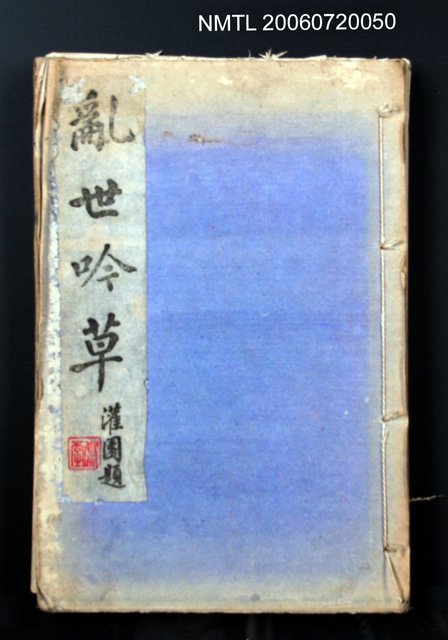 NMTL 20060720050
亂世吟草
灌園題